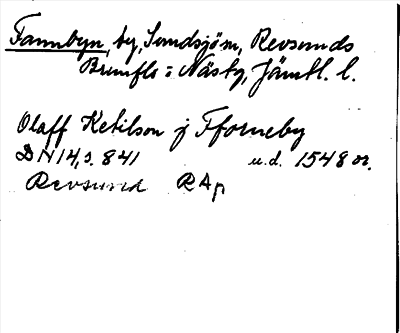 Fannbyn, by, Sundsjöm, Revsunds
Brunflo: Näsby, Jämtl. l.
Olaff Ketilson j Fforneby
DN 14, s. 841 u.d. 1548 or.
Revsund RAp